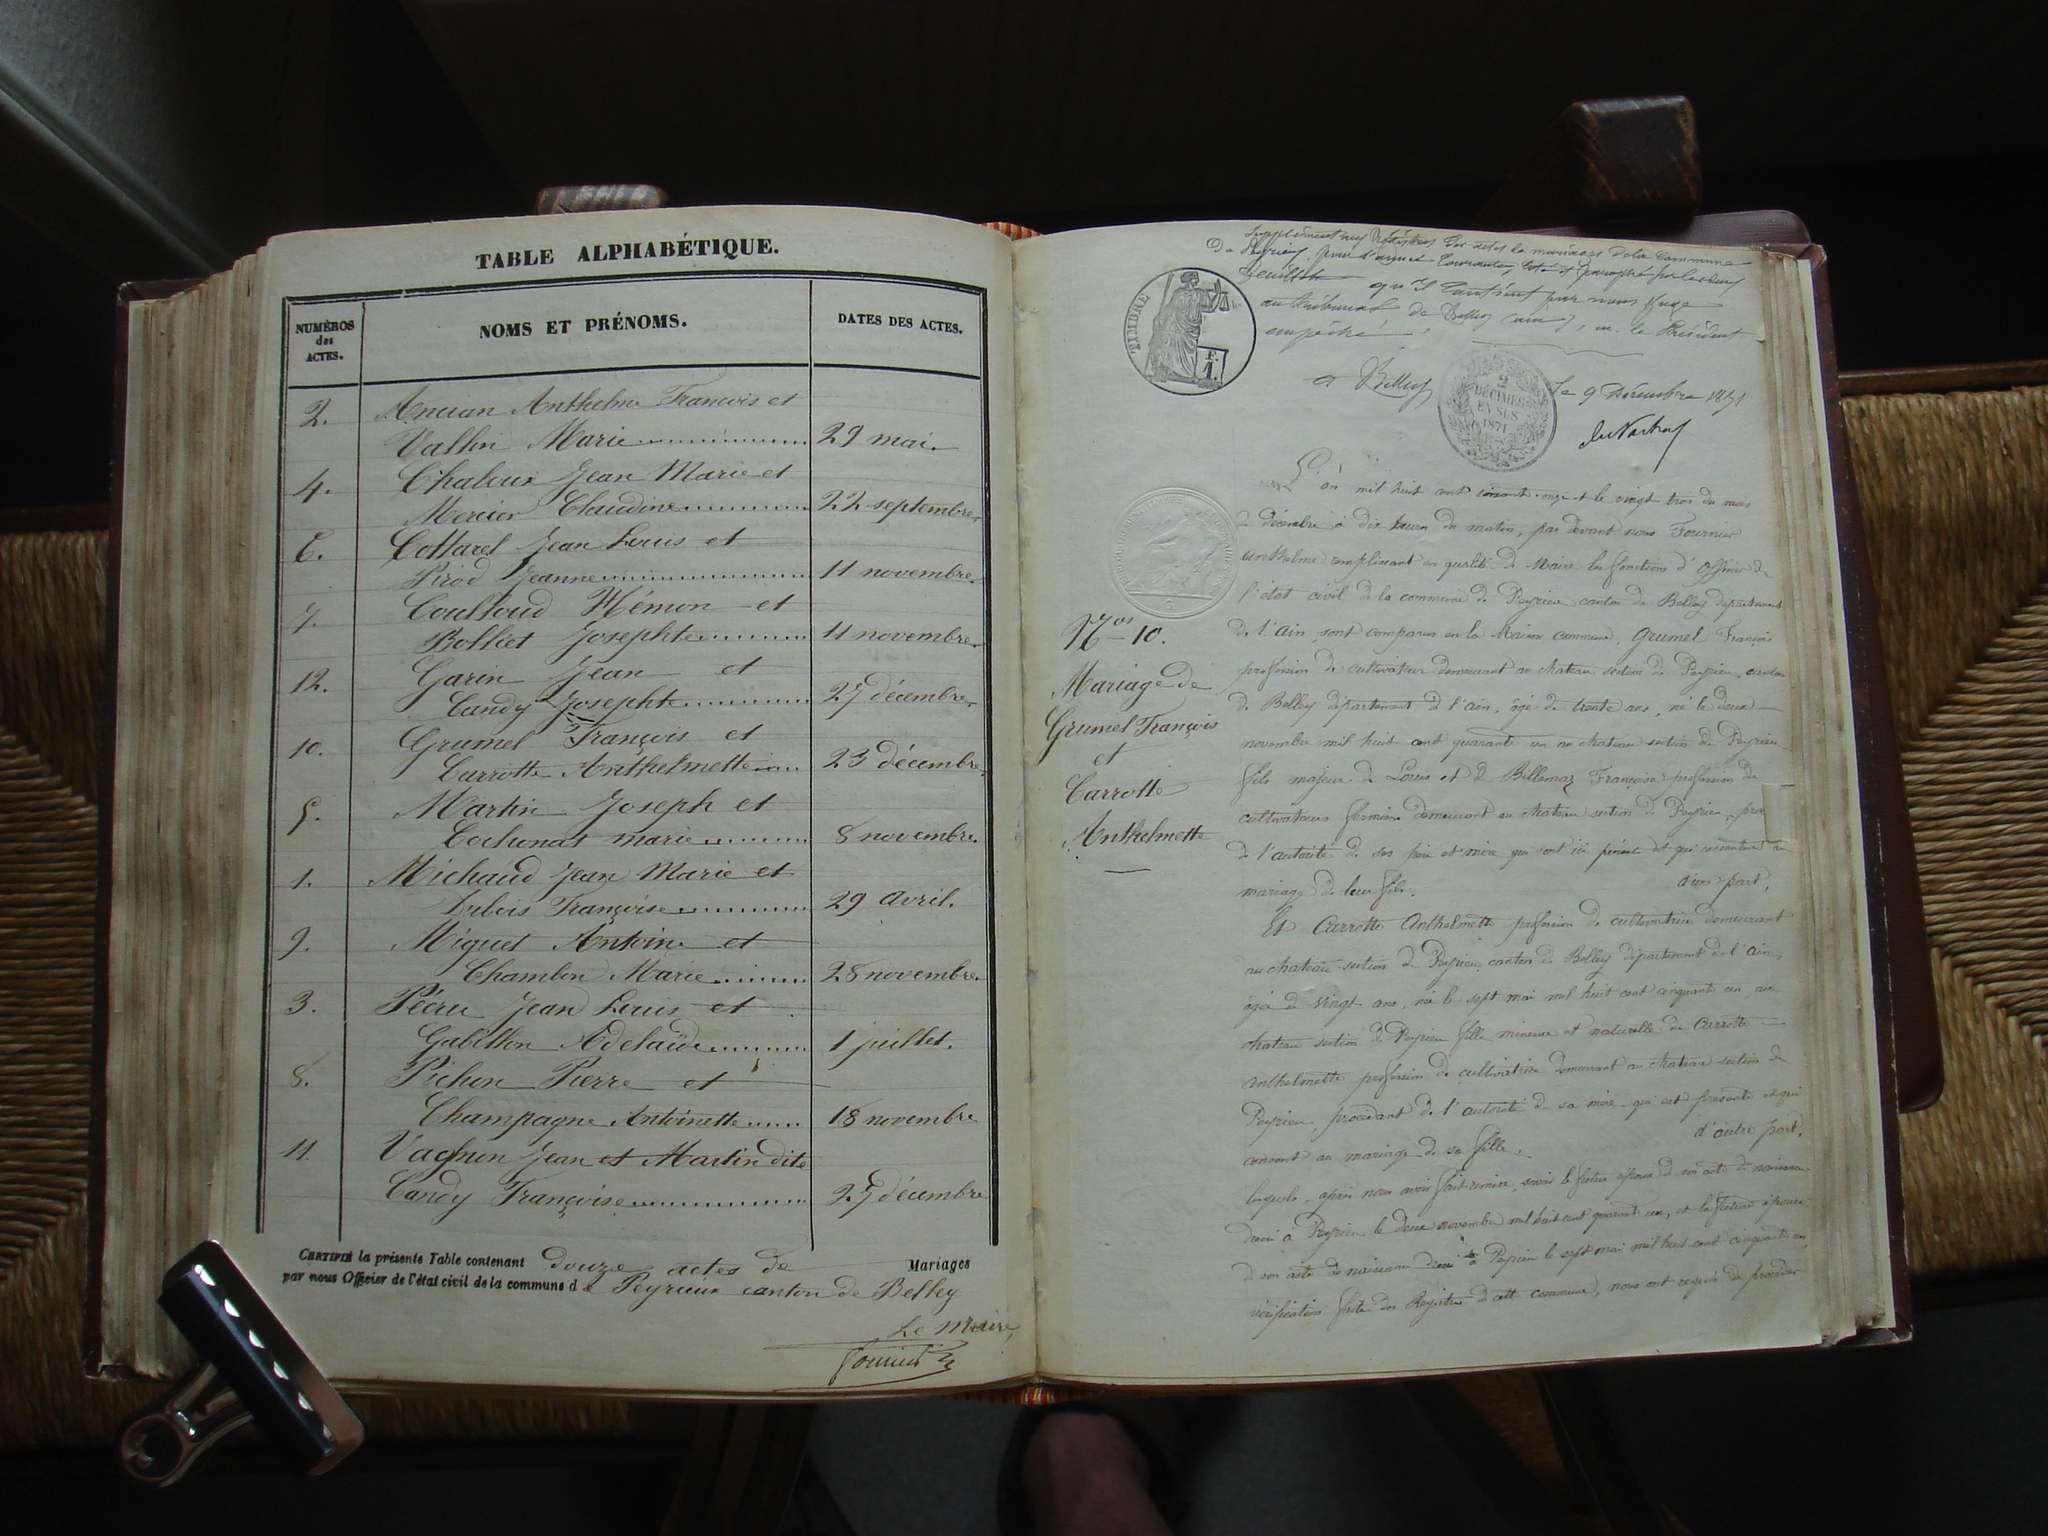 TABLE ALPHABÉTIQUE.
NUMÉROS
des
ACTES.
NOMS ET PRÉNOMS.
DATES DES ACTES.
2. Anthelme François et
Vallin Marie 29 mai.
4. Jean Marie et
Mercier Claudine 22 septembre.
6. Cottarel Jean Louis et
Pirod Jeanne 11 novembre.
7. Hémon et
Bolliet Josephte 11 novembre.
12. Garin Jean et
Candy Josephte 27 décembre.
10. Grumel François et
Carrotte Anthelmette 23 décembre.
5. Martin Joseph et
Cochonat Marie 8 novembre.
1. Michaud Jean Marie et
Dubois Françoise 29 avril.
9. Miguet Antoine et
Chambon Marie 28 novembre.
3. Pécru Jean Louis et
Gabillon Adelaïde 1 juillet.
8. Pichon Pierre et
Champagne Antoinette 18 novembre
11. Vagnon Jean et Martin dite
Candy Françoise 27 décembre
CERTIFIÉ la présente Table contenant douze actes de Mariages
par nous Officier de l'état civil de la commune de Peyrieux canton de Belley
Le Maire,
Fournier
Supplément aux Registres des actes de mariages de la Commune
de Peyrieu, pour l'année Courante, coté et paraphé
feuillets qu'il contient par nous Juge
au tribunal de Belley (ain), m. le Président
empêché
TIMBRE
F.
1.
a Belley le 9 Décembre 1871
2
DÉCIMES
EN SUS
1871
L'an mil huit cent soixante-onze et le vingt trois du mois
de décembre à dix heures du matin, par devant nous Fournier
anthelme remplissant en qualité de Maire les fonctions d'officier de
l'état civil de la commune de Peyrieu canton de Belley département
Nos 10.
Mariage de
Grumel François
et
Carrotte
Anthelmette
de l'ain, sont comparus en la Maison commune, Grumel François
profession de cultivateur demeurant au chateau section de Peyrieu, canton
de Belley département de l'ain, âgé de trente ans, né le deux
novembre mil huit cent quarante un au chateau section de Peyrieu
fils majeur de Louis et de Billemaz Françoise profession de
cultivateurs demeurant au chateau section de Peyrieu,
de l'autorité de ses père et mère qui sont ici présents et qui consentent au
mariage de leur fils. d'une part,
Et Carrotte Anthelmette profession de cultivatrice demeurant
au chateau section de Peyrieu canton de Belley département de l'ain,
âgée de vingt ans, née le sept mai mil huit cent cinquante un au
chateau section de Peyrieu fille mineure et naturelle de Carrotte
Anthelmette profession de cultivatrice demeurant au chateau section de
Peyrieu, procédant de l'autorité de sa mère qui est présente et qui
consent au mariage de sa fille, d'autre part,
lesquels, après nous avoir fait remise, savoir le futur époux de son acte de naissance
dressé à Peyrieu le deux novembre mil huit cent quarante un, et la future épouse
de son acte de naissance dressé à Peyrieu le sept mai mil huit cent cinquante un
vérification faite des Registres de cette commune, nous ont requis de procéder